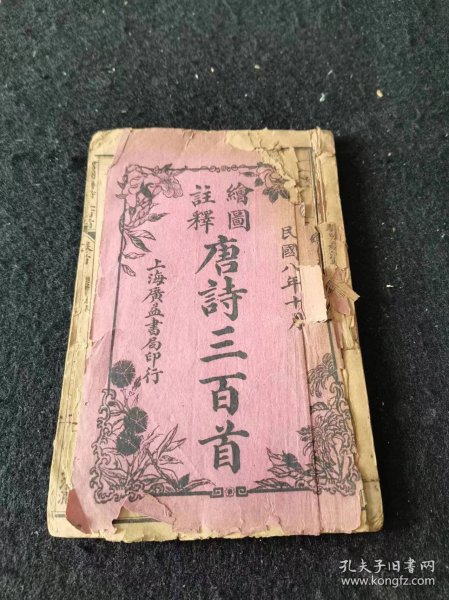 民國八年十月
繪圖
註釋
唐詩三百首
上海廣益書局印行
孔夫子旧书网
www.kongfz.com